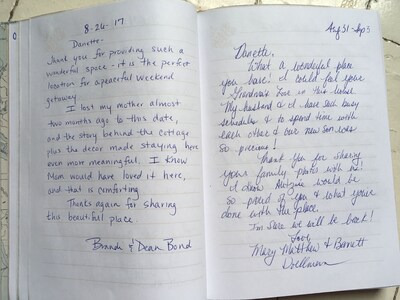 8-26-17
Danette-
Thank you for providing such a
wonderful space - it is the perfect
location for a peaceful weekend
getaway.
I lost my mother almost
two months ago to this date,
and the story behind the cottage
plus the decor made staying here
even more meaningful. I know
Mom would have loved it here,
and that is comforting.
Thanks again for sharing
this beautiful place.
Brandi & Dean Bond
Aug 31 - Sep 3
Danette,
What a wonderful place
you have! I could feel your
Grandma's love in this house.
My husband & I have such busy
schedules & to spend time with
each other & our new son was
so precious!
Thank you for sharing
your family photos with us!
I know would be
so proud of you & what you've
done with the place.
I'm sure we will be back!
Love,
Mary, Matthew & Barrett